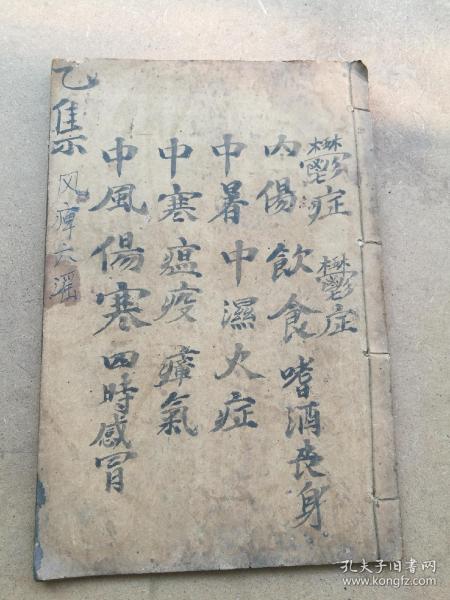 鬱症
鬱症
内傷飲食嗜酒喪身
中暑中濕火症
中寒瘟疫瘴氣
中風傷寒四時感冒
乙集
风痺六滛
孔夫子旧书网
www.kongfz.com